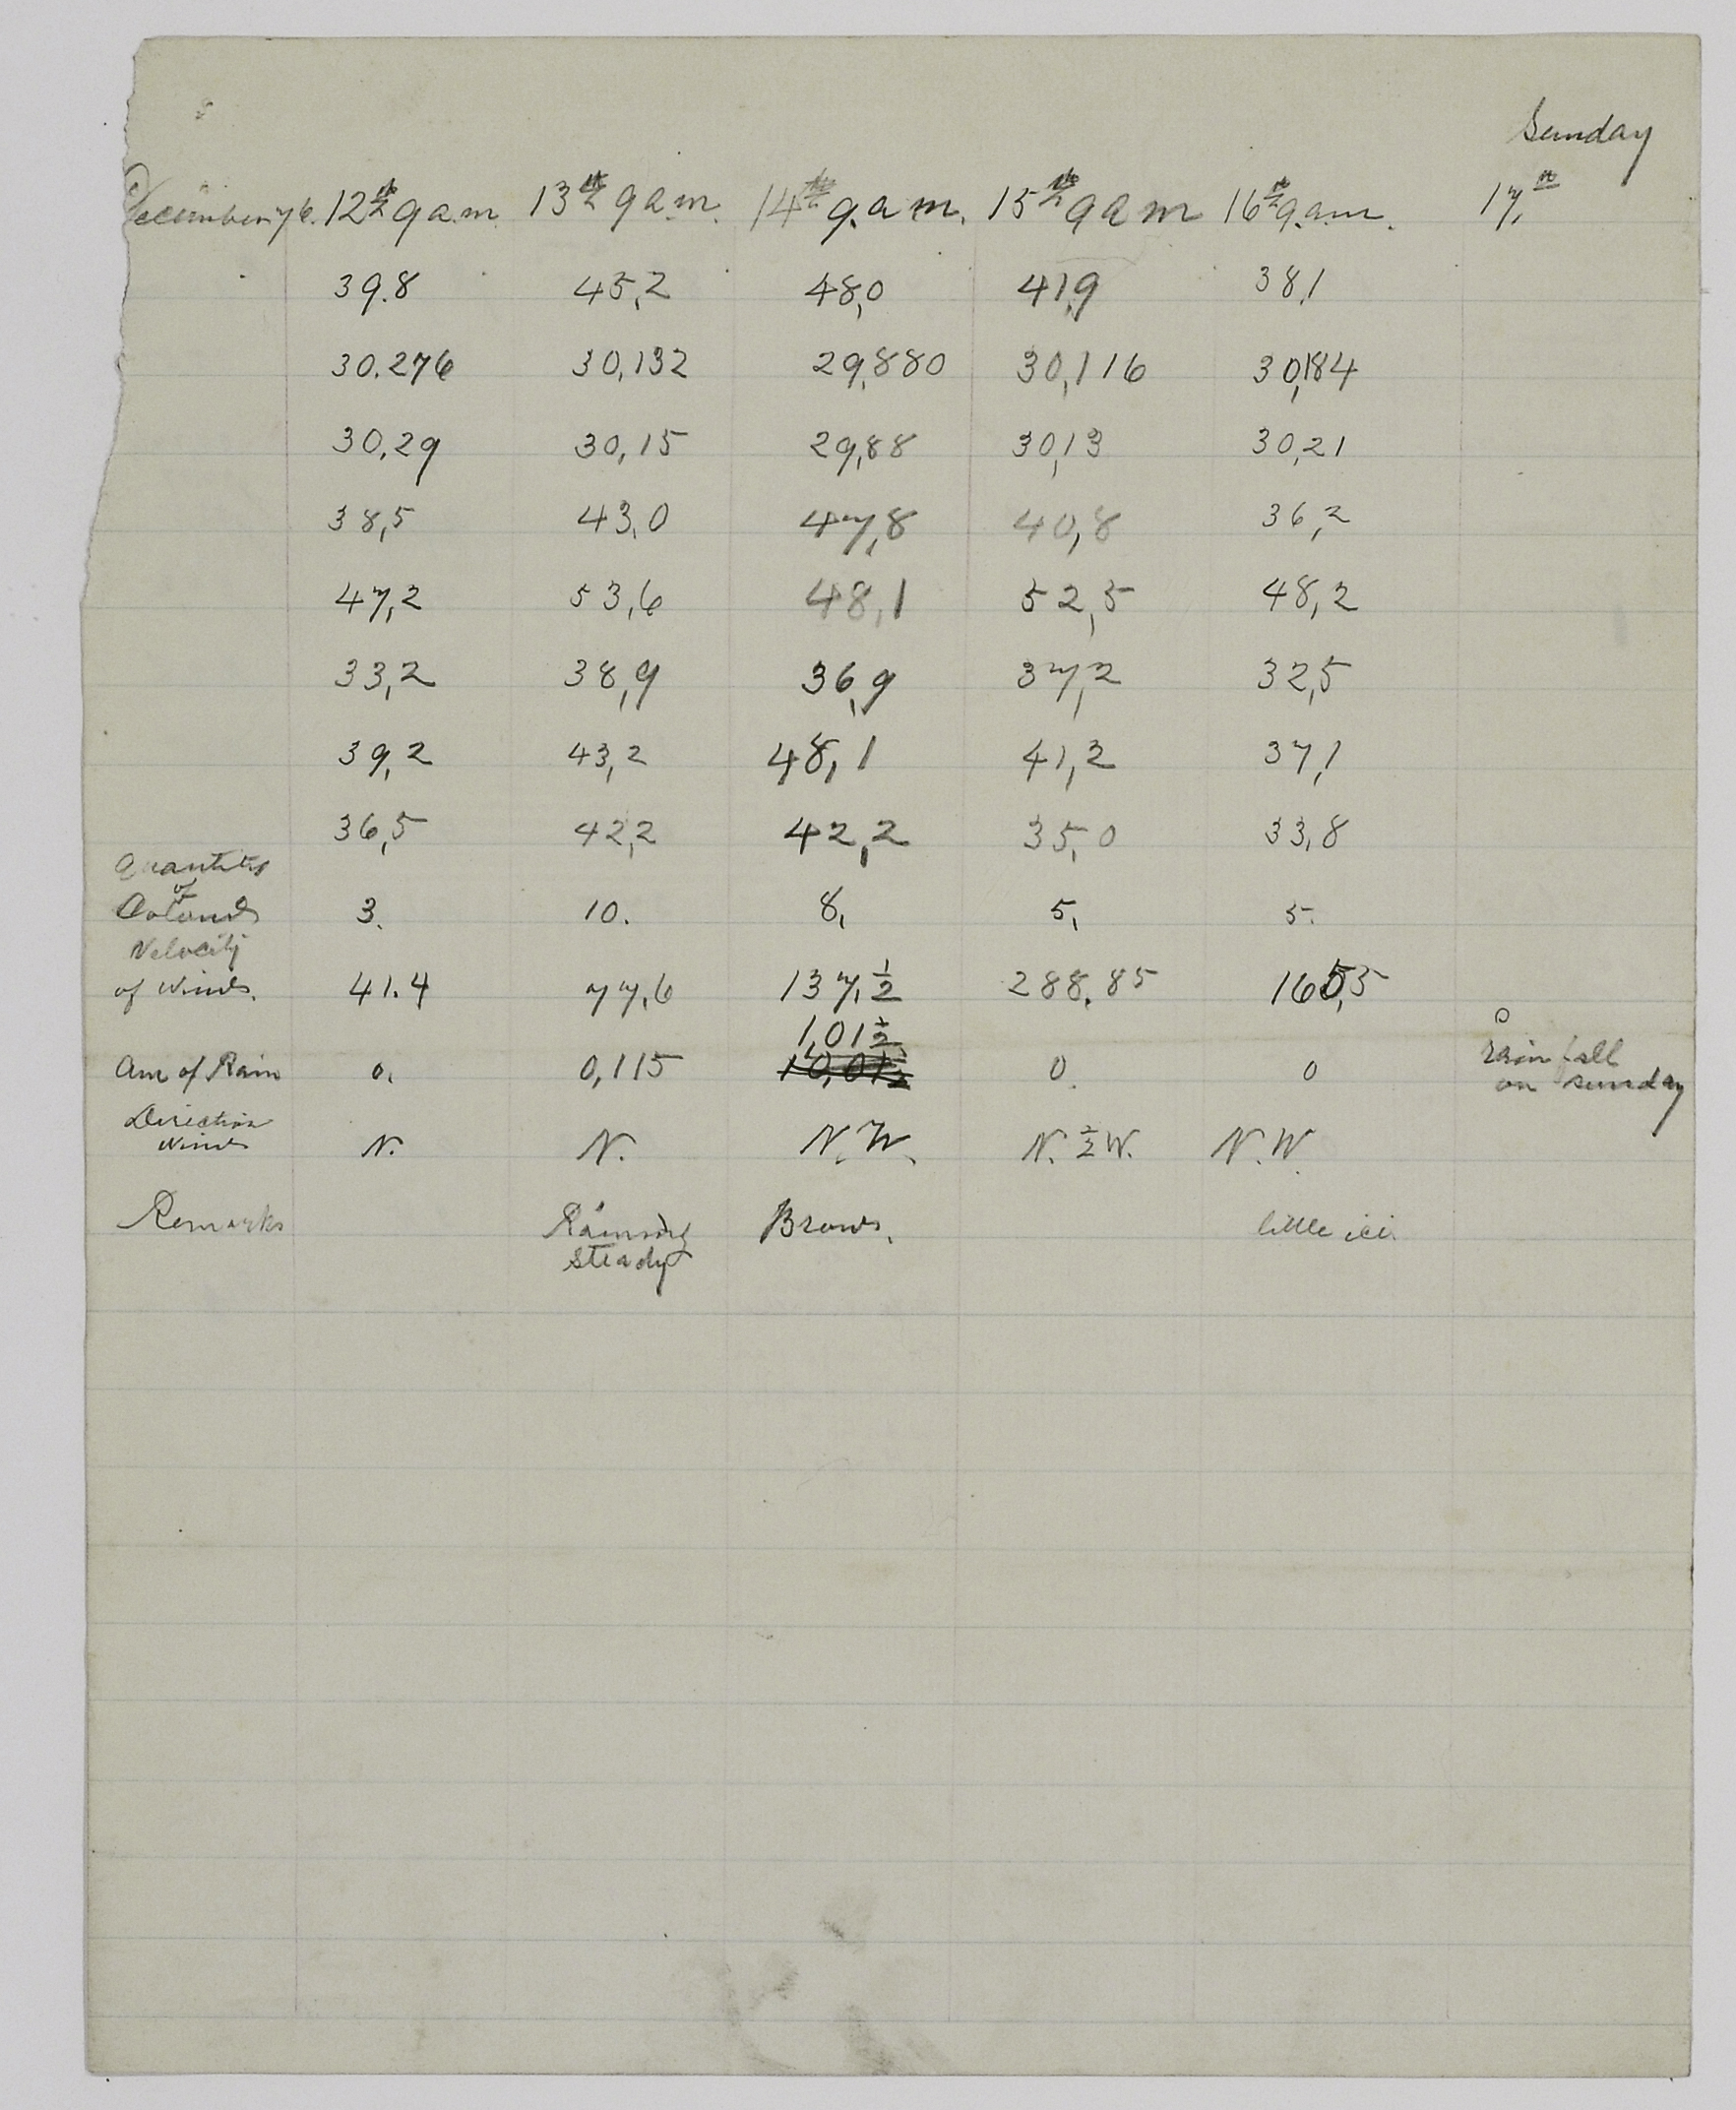 Sunday
December 76. 12th 9 a.m 13th 9 a.m. 14th 9. a m. 15th 9 a m 16th 9. a.m. 17,th
39.8 45,2 48,0 41,9 38,1
30.276 30,132 29,880 30,116 30,184
30,29 30,15 29,88 30,13 30,21
38,5 43,0 47,8 40,8 36,2
47,2 53,6 48,1 52,5 48,2
33,2 38,9 36,9 37,2 32,5
39,2 43,2 48,1 41,2 37,1
36,5 42,2 42,2 35,0 33,8
Quantites
of
Colouds 3. 10. 8, 5, 5.
Velocity
of Winds. 41.4 77,6 137,½ 288.85 165,5
1,01½ 0
Am of Rain 0. 0,115 10,01½ 0. 0 rain fall
on sunday
Direction
Winds N. N. N.W. N.½W. N.W.
Remarks Raining little ice
steady